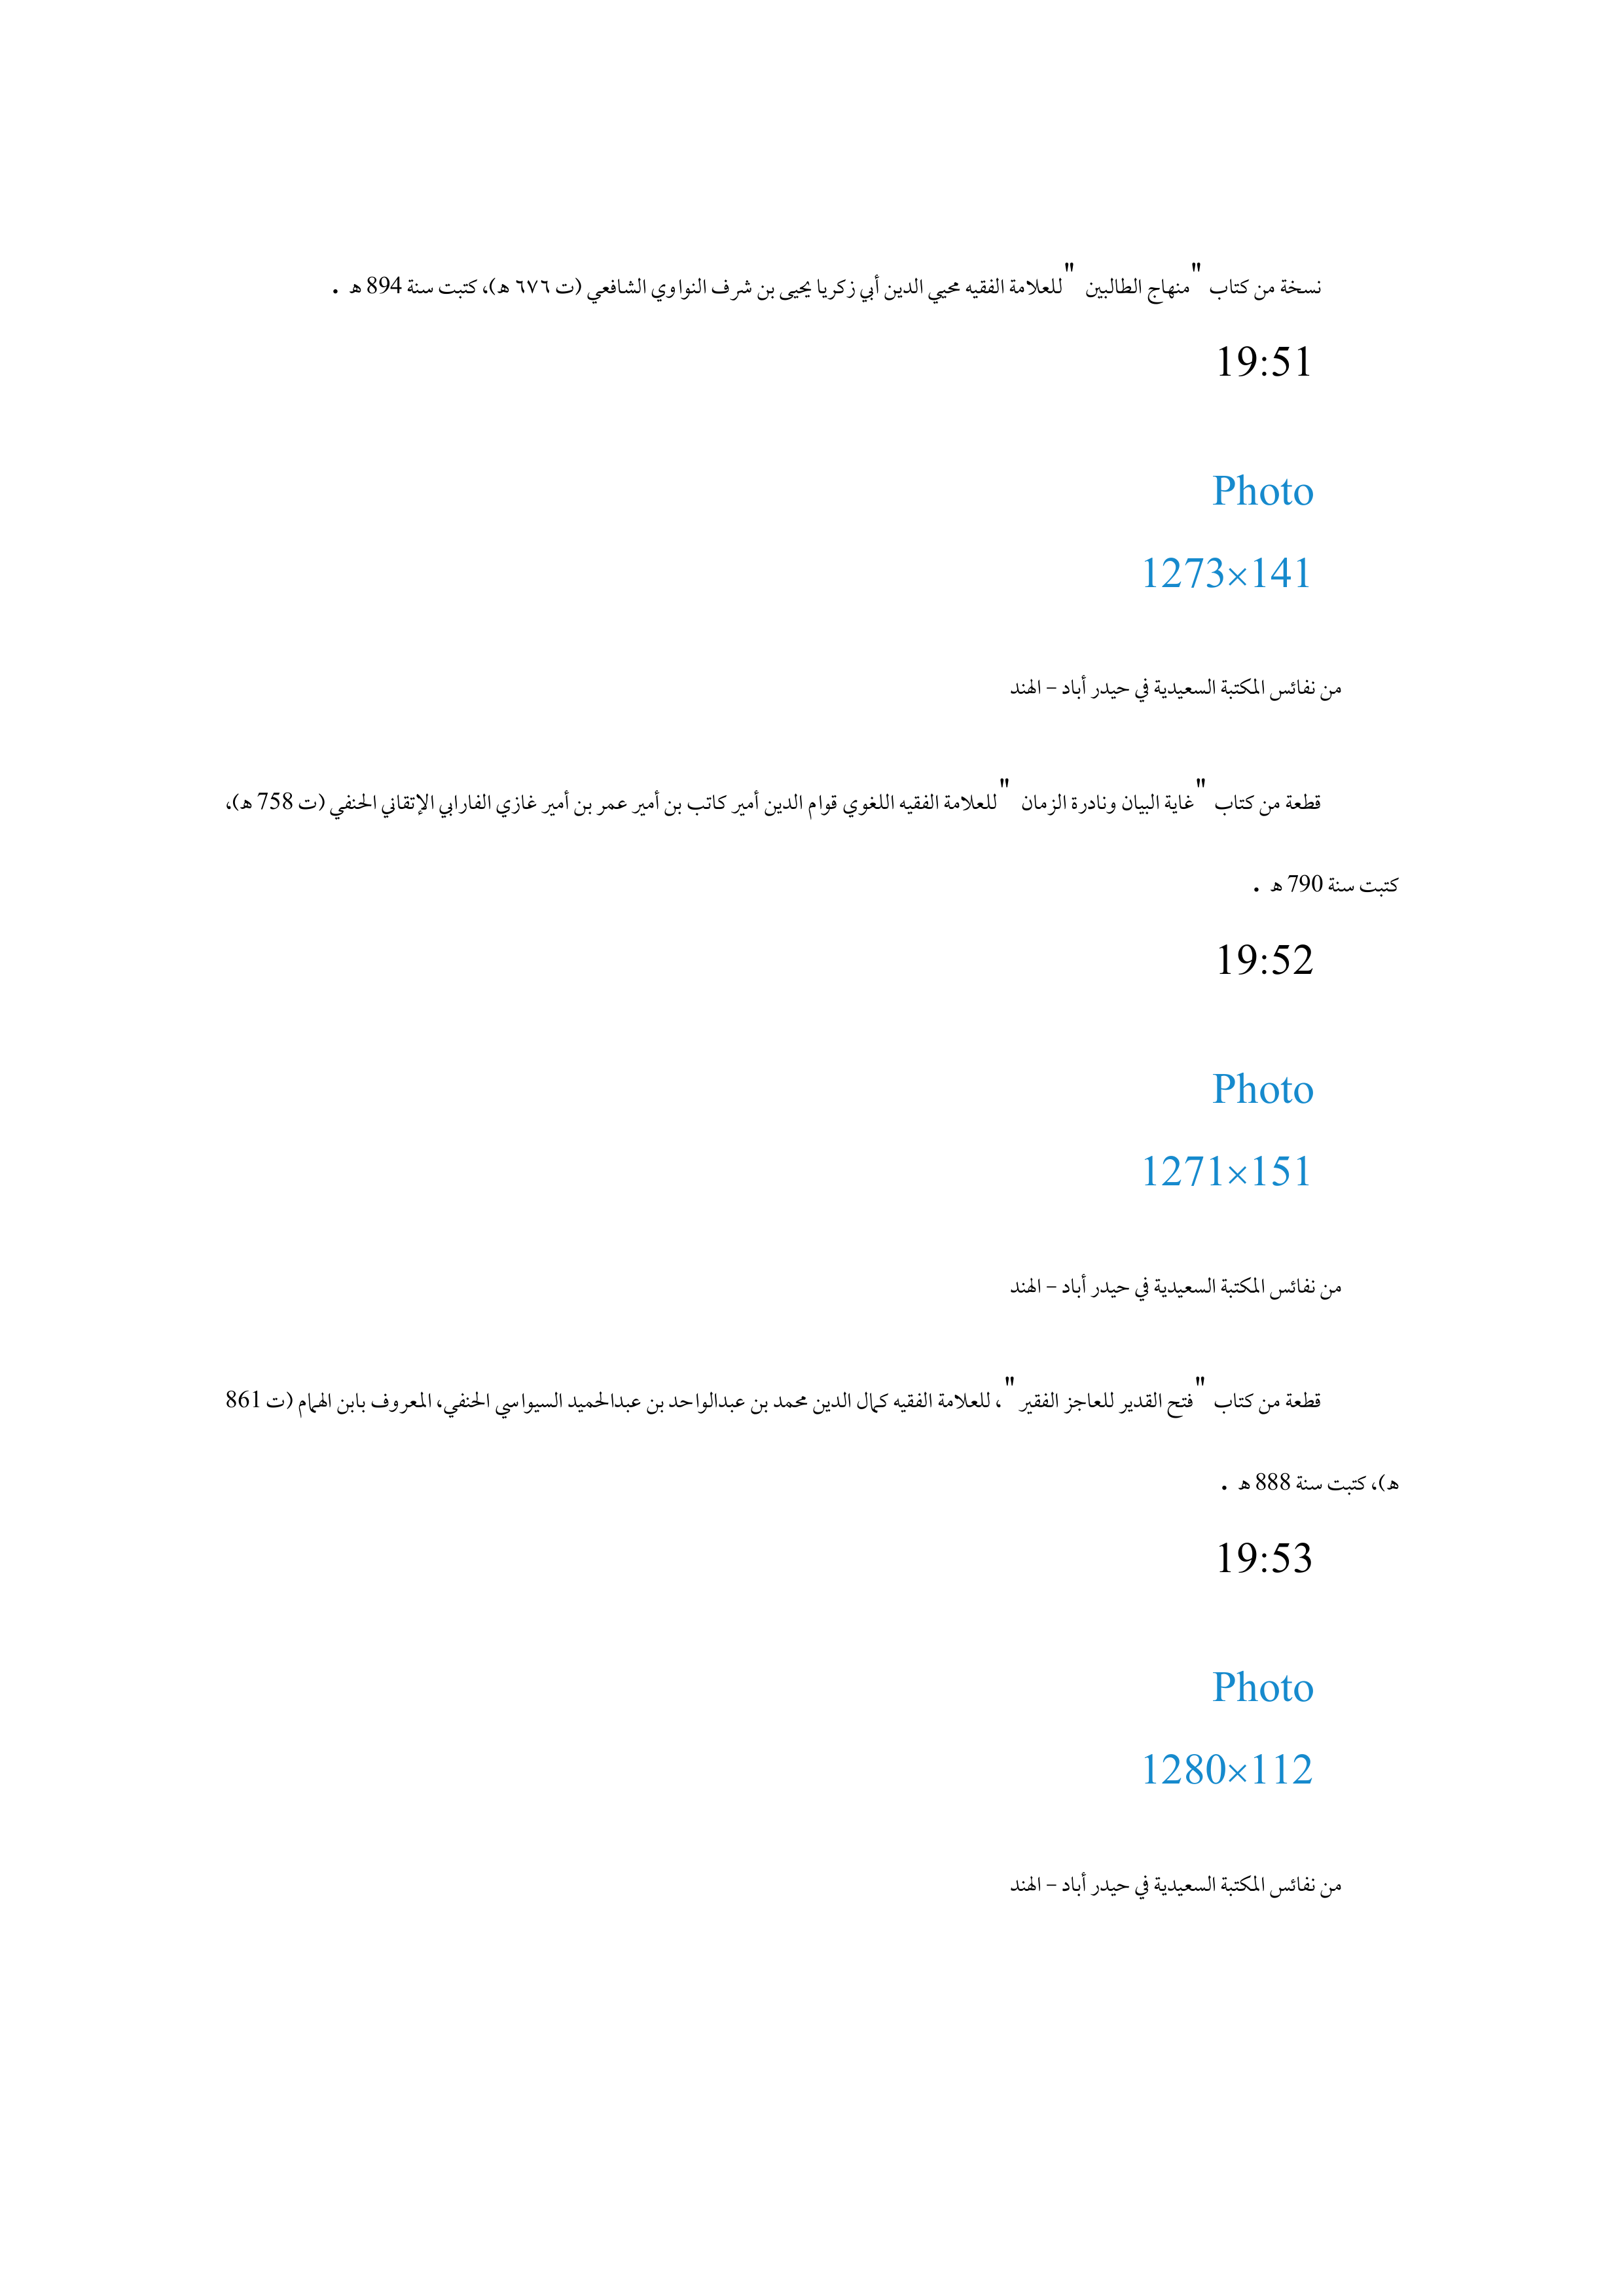 نسخة من كتاب "منهاج الطالبين " للعلامة الفقيه محيي الدين أبي زكريا يحيى بن شرف النواوي الشافعي (ت ٦٧٦ ه)، كتبت سنة 894 ه .
19:51
Photo
1273×141
من نفائس المكتبة السعيدية في حيدر أباد – الهند
قطعة من كتاب "غاية البيان ونادرة الزمان " للعلامة الفقيه اللغوي قوام الدين أمير كاتب بن أمير عمر بن أمير غازي الفارابي الإتقاني الحنفي (ت 758 ه)،
كتبت سنة 790 ه .
19:52
Photo
1271×151
من نفائس المكتبة السعيدية في حيدر أباد – الهند
قطعة من كتاب "فتح القدير للعاجز الفقير"، للعلامة الفقيه كمال الدين محمد بن عبدالواحد بن عبدالحميد السيواسي الحنفي، المعروف بابن الهمام (ت 861
ه)، كتبت سنة 888 ه .
19:53
Photo
1280×112
من نفائس المكتبة السعيدية في حيدر أباد – الهند